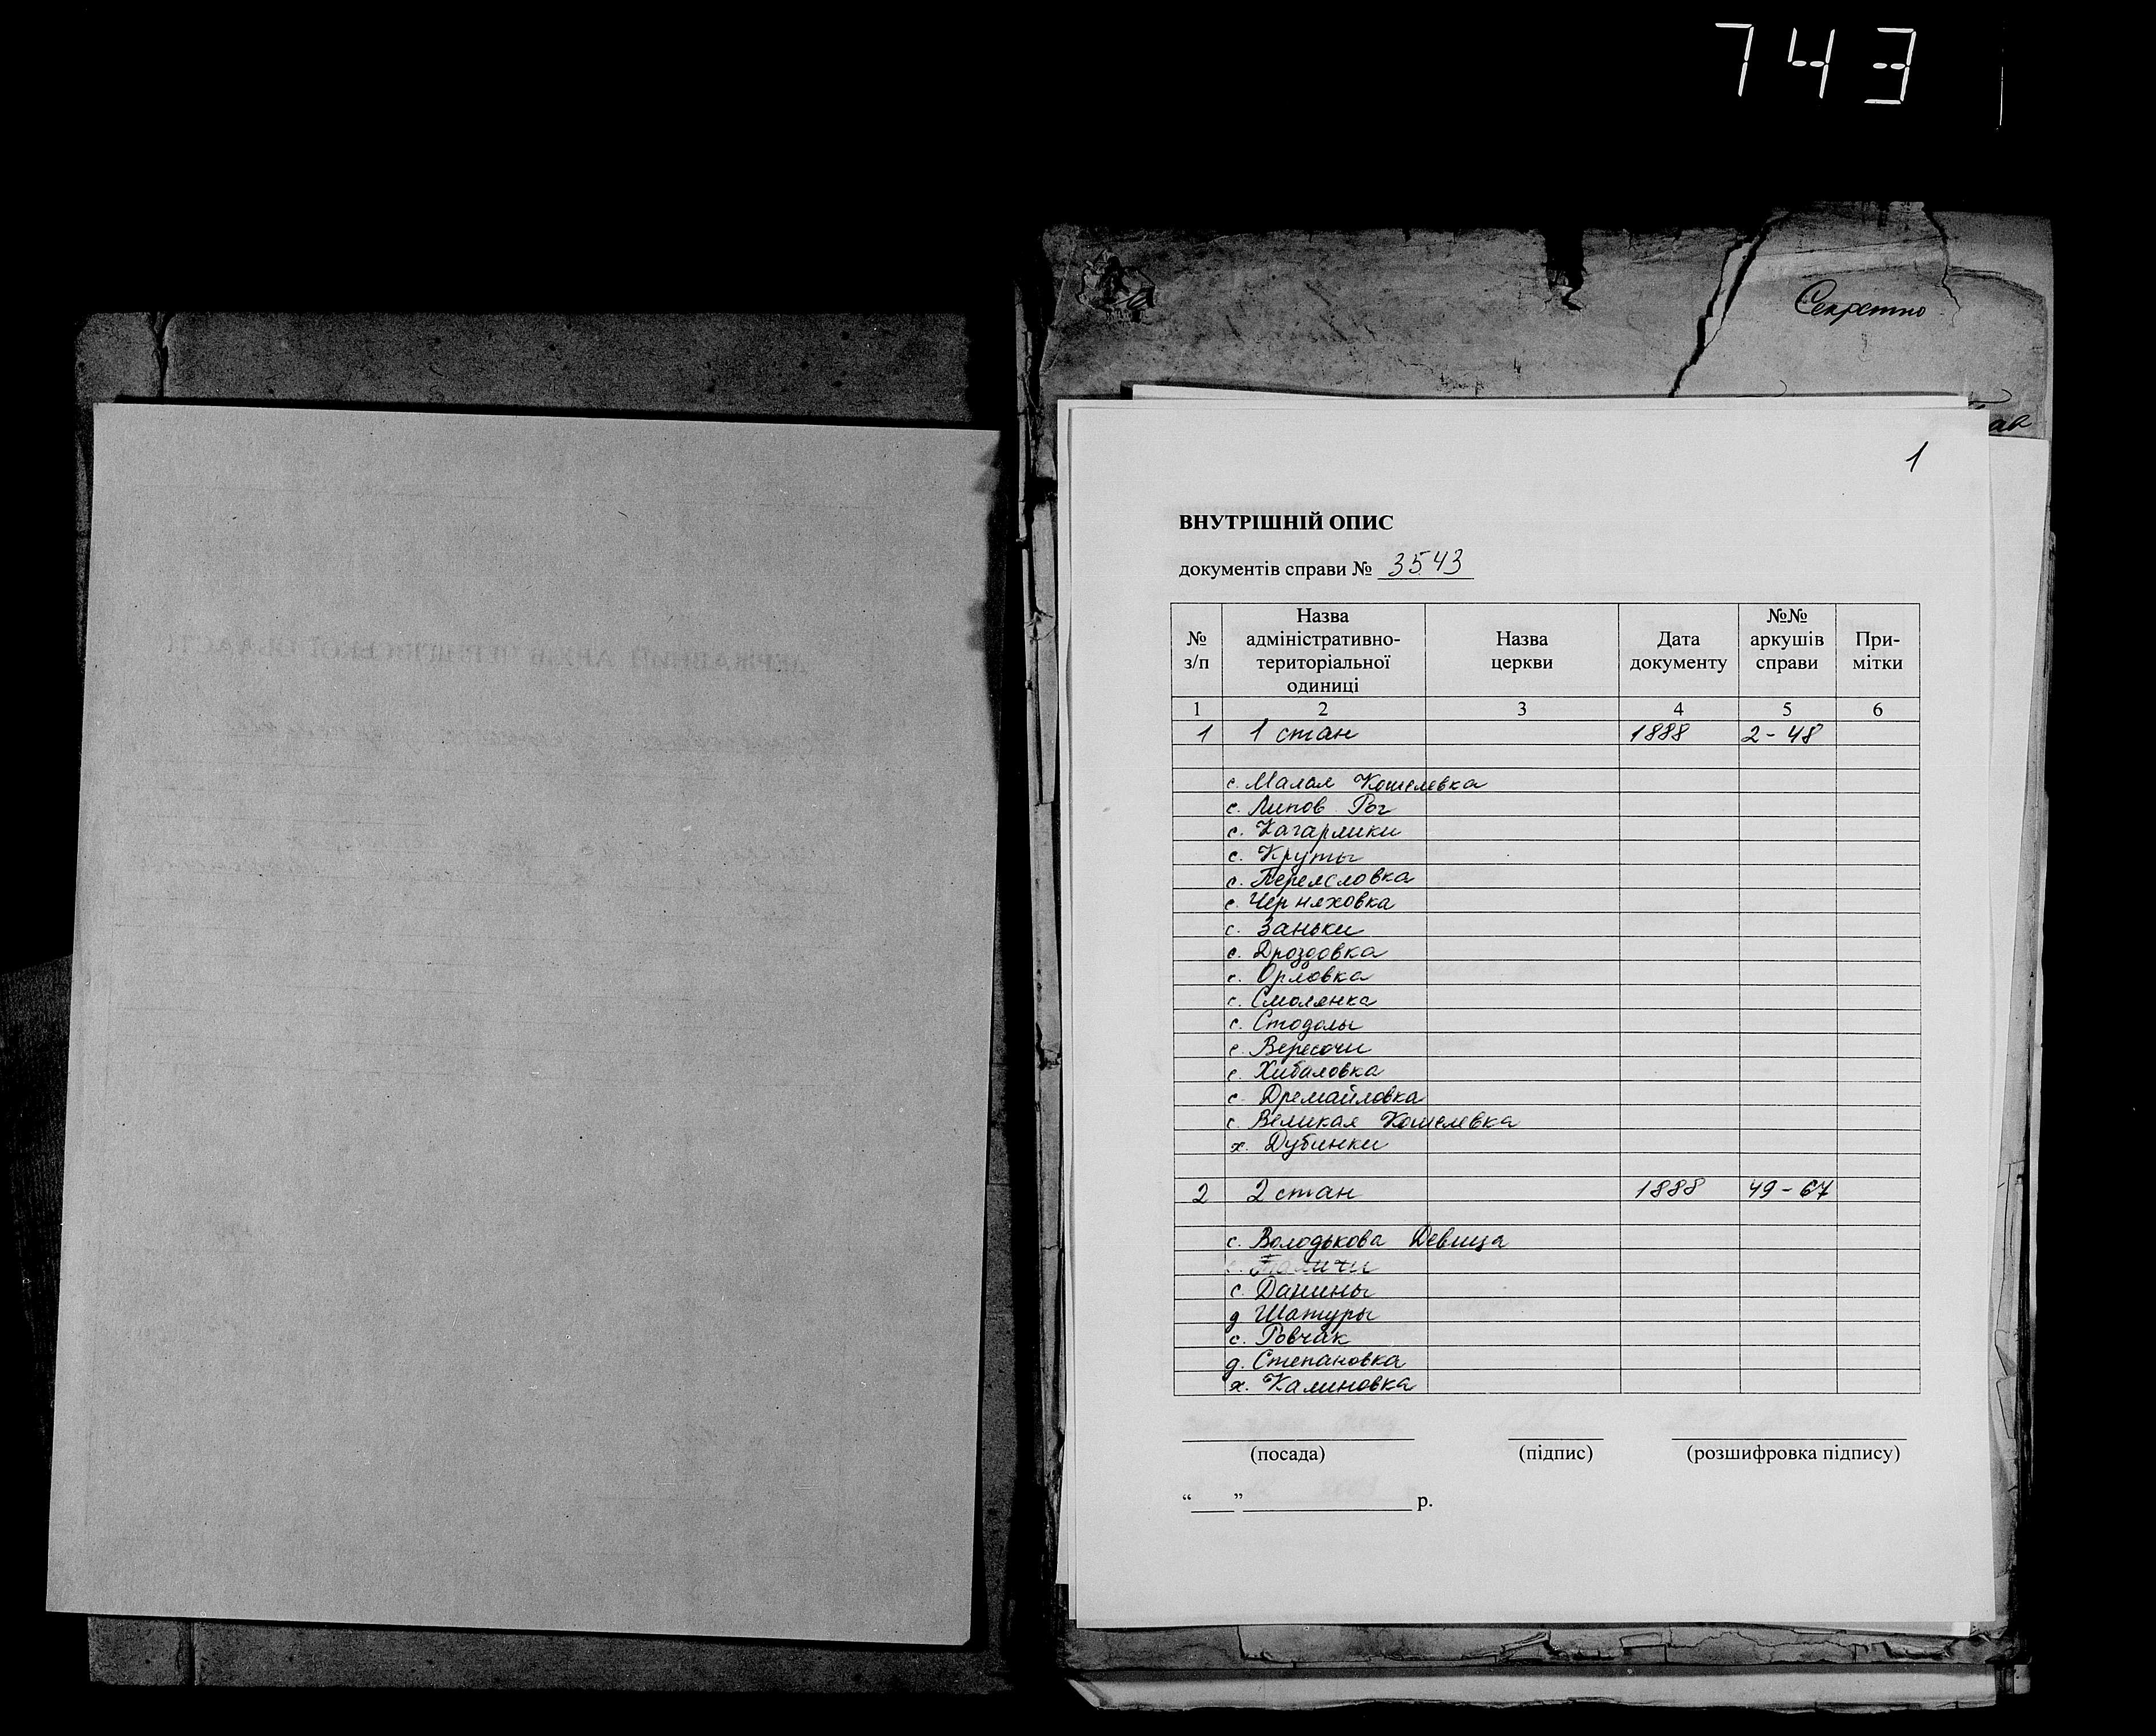 743
Секретно
1
ВНУТРІШНІЙ ОПИС
документів справи № 3543
№ з/п | Назва адміністративно-територіальної одиниці | Назва церкви | Дата документу | №№ аркушів справи | При-мітки
1 2 3 4 5 6
1 1 стан 1888 2-48
с. Малая Кошелевка
с. Липов Рог
с. Кагарлики
с. Круты
с. Переясловка
с. Черняховка
с. Заньки
с. Дроздовка
с. Орловка
с. Смолянка
с. Стодолы
с. Вересочи
с. Хибаловка
с. Дремайловка
с Великая Кошелевка
х. Дубинки
2 2 стан 1888 49-67
с. Володькова Девица
с. Данины
д Шатуры
с. Ровчак
д. Степановка
х. Калиновка
(посада) (підпис) (розшифровка підпису)
“___”______________ р.